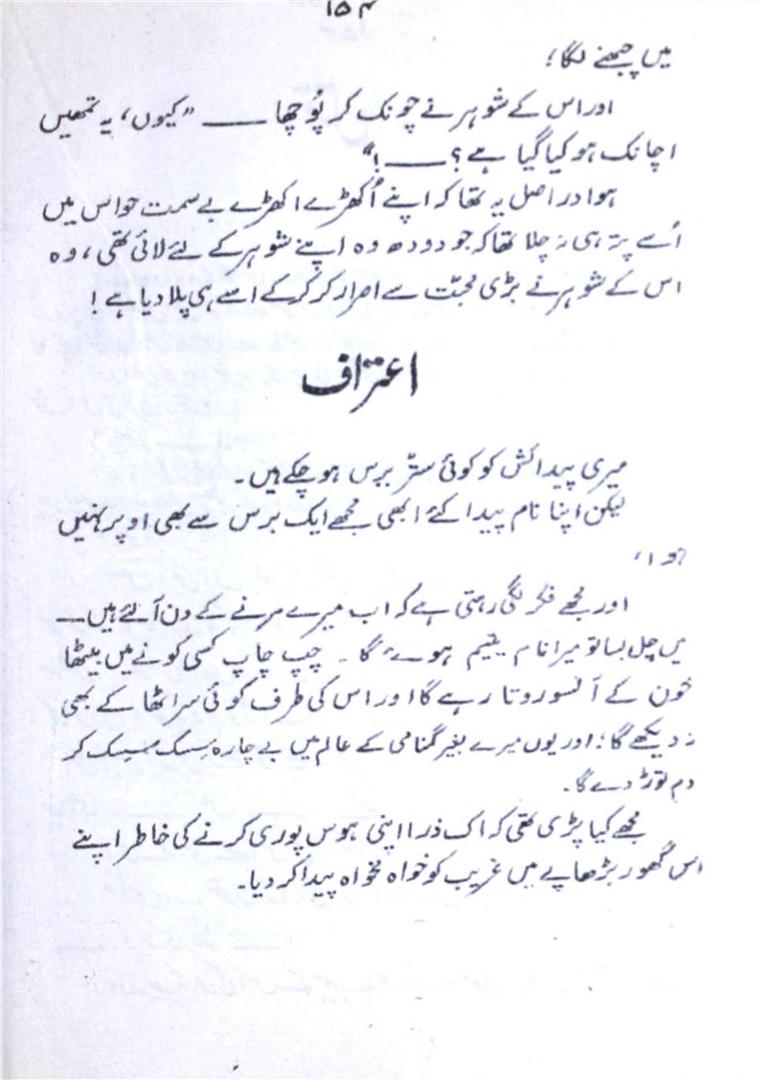 ۱۵۴
میں چبھنے لگا؛
اور اس کے شوہر نے چونک کر پُوچھا ——— "کیوں، یہ تمھیں
اچانک ہو کیا گیا ہے؟ ——— !"
ہوا دراصل یہ تھا کہ اپنے اُکھڑے اکھڑے بے سمت حواس میں
اُسے پتہ ہی نہ چلا تھا کہ جو دودھ وہ اپنے شوہر کے لئے لائی تھی، وہ
اس کے شوہر نے بڑی محبّت سے اصرار کر کر کے اسے ہی پلا دیا ہے!
اعتراف
میری پیدائش کو کوئی ستّر برس ہو چکے ہیں۔
لیکن اپنا نام پیدا کئے ابھی مجھے ایک برس سے بھی اوپر نہیں
ہوا،
اور مجھے فکر لگی رہتی ہے کہ اب میرے مرنے کے دن آ لئے ہیں —
میں چل بسا تو میرا نام یتیم ہوئے گا۔ چپ چاپ کسی کونے میں بیٹھا
خون کے آنسو روتا رہے گا اور اس کی طرف کوئی سر اٹھا کے بھی
نہ دیکھے گا؛ اور یوں میرے بغیر گمنامی کے عالم میں بے چارہ سسک سسک کر
دم توڑ دے گا۔
مجھے کیا پڑی تھی کہ اک ذرا اپنی ہوس پوری کرنے کی خاطر اپنے
اس گھور بڑھاپے میں غریب کو خواہ مخواہ پیدا کر دیا۔